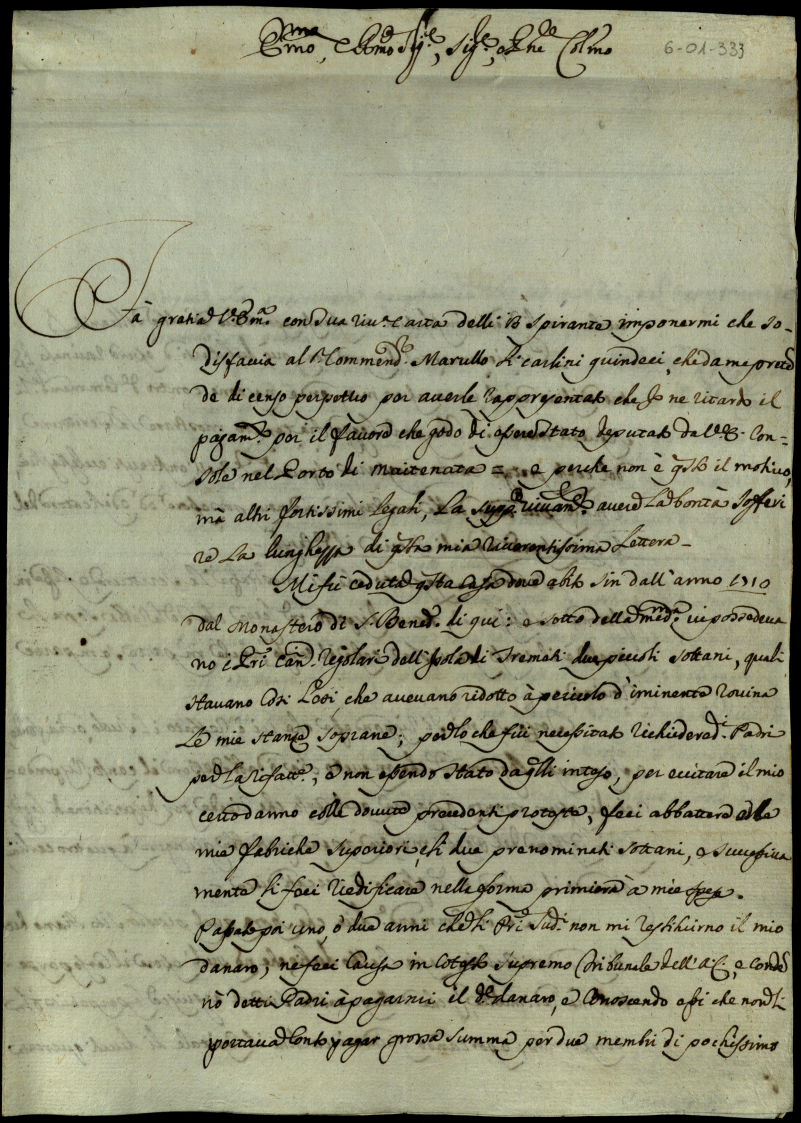 Emo, e Rmo Sig.e, Sig.e, e Pne Colmo
6-01-333
Fà gratia V. Em.a con sua riv.a carta delli 18 spirante impormi che so-
disfaccia al Commend.r Marullo li carlini quindeci, che da me preten
de di censo perpetuo per averle rappresentato che Io ne ritardo il
pagam.to per il favore che godo di essere stato deputato da V. E. Con=
sole nel Porto di Mattenata =, e perche non è q.sto il motivo,
mà altri fortissimi legali, La supp.co avere La bontà soffrir
re La lunghezza di q.sta mia riverentissima Lettera -
Mi fù ceduta q.sta casa dove abito sin dall'anno 1710
dal Monastero di S. Bened.o di qui: e sotto della med.a vi possedeva
no i P̃ri Can.ci regolari dell'Isola di Tremiti due piccoli sottani, quali
stavano così Lesi che avevano ridotto à pericolo d'iminente rovina
Le mie stanze soprane; per lo che fui necessitato richiedere d.i Padri
per la rifatt.e, e non essendo stato da q.lli inteso, per evitare il mio
certo danno colle dovute precedenti proteste, feci abbattere colle
mie fabriche superiori, li due prenominati sottani, e successiva
mente li feci riedificare nella forma primiera à mie spese.
Passate poi uno, ò due anni che li P̃ri sud.i non mi restituirno il mio
danaro; ne feci causa in cotesto supremo Tribunale dell'A.C., e conden
nò detti Padri à pagarmi il d.o danaro, e conoscendo essi che non li
portava conto pagar grossa summa per due membri di pochissimo